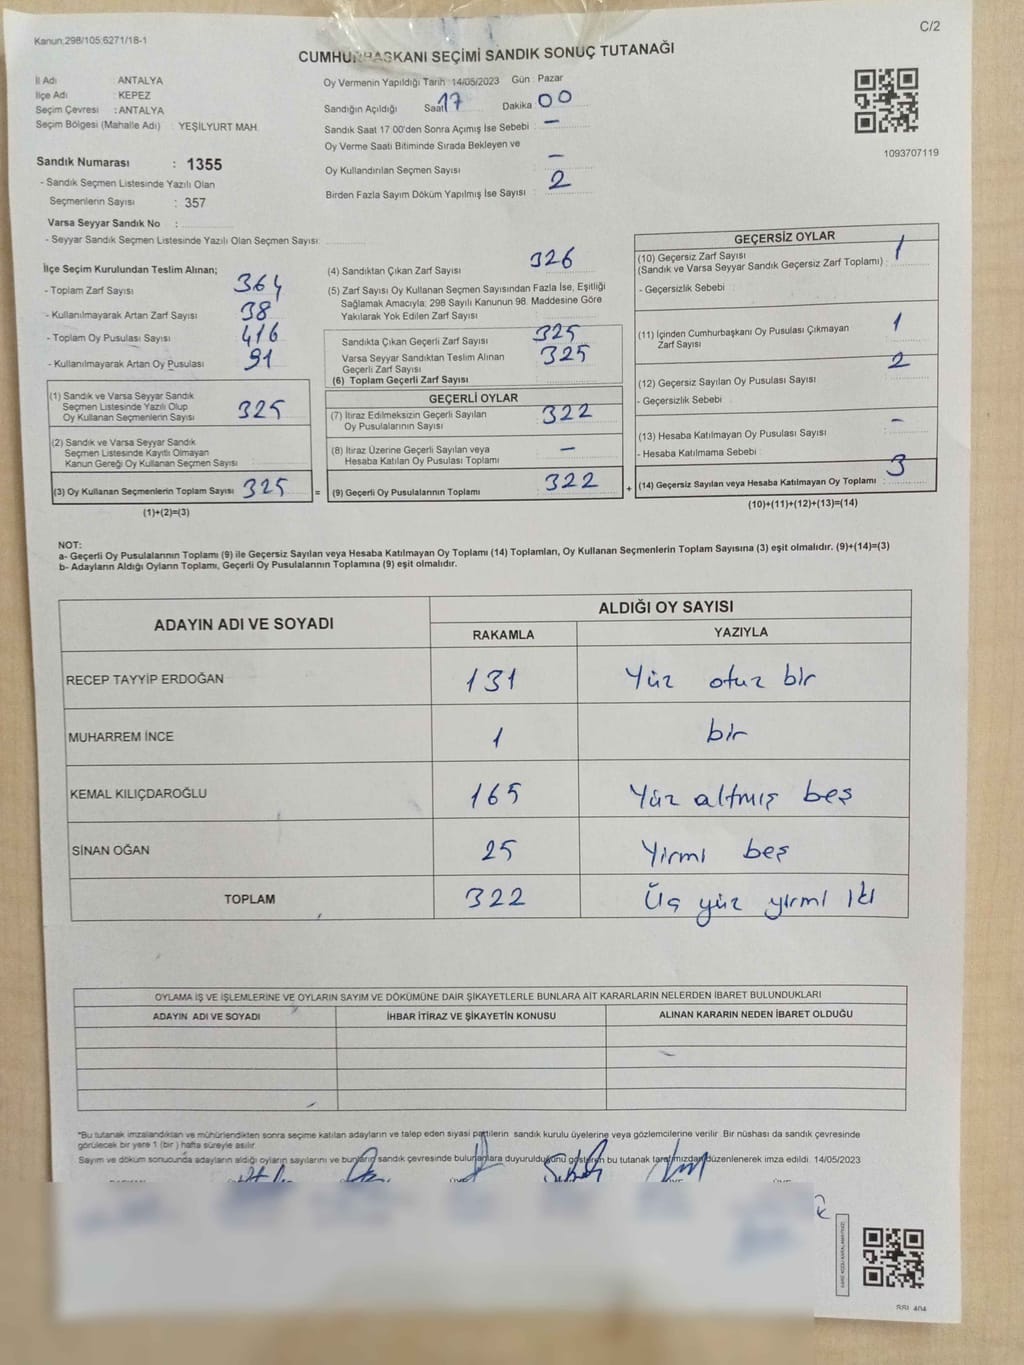 Kanun:298/105;6271/18-1
C/2
CUMHURBAŞKANI SEÇİMİ SANDIK SONUÇ TUTANAĞI
İl Adı : ANTALYA
İlçe Adı : KEPEZ
Seçim Çevresi : ANTALYA
Seçim Bölgesi (Mahalle Adı) : YEŞİLYURT MAH.
Sandık Numarası : 1355
- Sandık Seçmen Listesinde Yazılı Olan
Seçmenlerin Sayısı : 357
Varsa Seyyar Sandık No :
- Seyyar Sandık Seçmen Listesinde Yazılı Olan Seçmen Sayısı:
Oy Vermenin Yapıldığı Tarih : 14/05/2023 Gün : Pazar
Sandığın Açıldığı Saat 17 Dakika 00
Sandık Saat 17 00'den Sonra Açımış İse Sebebi : -
Oy Verme Saati Bitiminde Sırada Bekleyen ve
Oy Kullandırılan Seçmen Sayısı : -
Birden Fazla Sayım Döküm Yapılmış İse Sayısı : 2
1093707119
İlçe Seçim Kurulundan Teslim Alınan;
- Toplam Zarf Sayısı : 364
- Kullanılmayarak Artan Zarf Sayısı : 38
- Toplam Oy Pusulası Sayısı : 416
- Kullanılmayarak Artan Oy Pusulası : 91
(1) Sandık ve Varsa Seyyar Sandık
Seçmen Listesinde Yazılı Olup
Oy Kullanan Seçmenlerin Sayısı : 325
(2) Sandık ve Varsa Seyyar Sandık
Seçmen Listesinde Kayıtlı Olmayan
Kanun Gereği Oy Kullanan Seçmen Sayısı
(3) Oy Kullanan Seçmenlerin Toplam Sayısı : 325
(1)+(2)=(3)
=
(4) Sandıktan Çıkan Zarf Sayısı : 326
(5) Zarf Sayısı Oy Kullanan Seçmen Sayısından Fazla İse, Eşitliği
Sağlamak Amacıyla; 298 Sayılı Kanunun 98. Maddesine Göre
Yakılarak Yok Edilen Zarf Sayısı :
Sandıkta Çıkan Geçerli Zarf Sayısı : 325
Varsa Seyyar Sandıktan Teslim Alınan
Geçerli Zarf Sayısı 325
(6) Toplam Geçerli Zarf Sayısı
GEÇERLİ OYLAR
(7) İtiraz Edilmeksizin Geçerli Sayılan
Oy Pusulalarının Sayısı : 322
(8) İtiraz Üzerine Geçerli Sayılan veya
Hesaba Katılan Oy Pusulası Toplamı : -
(9) Geçerli Oy Pusulalarının Toplamı : 322
+
GEÇERSİZ OYLAR
(10) Geçersiz Zarf Sayısı
(Sandık ve Varsa Seyyar Sandık Geçersiz Zarf Toplamı) : 1
- Geçersizlik Sebebi :
(11) İçinden Cumhurbaşkanı Oy Pusulası Çıkmayan
Zarf Sayısı : 1
(12) Geçersiz Sayılan Oy Pusulası Sayısı : 2
- Geçersizlik Sebebi :
(13) Hesaba Katılmayan Oy Pusulası Sayısı : -
- Hesaba Katılmama Sebebi :
(14) Geçersiz Sayılan veya Hesaba Katılmayan Oy Toplamı : 3
(10)+(11)+(12)+(13)=(14)
NOT:
a- Geçerli Oy Pusulalarının Toplamı (9) ile Geçersiz Sayılan veya Hesaba Katılmayan Oy Toplamı (14) Toplamları, Oy Kullanan Seçmenlerin Toplam Sayısına (3) eşit olmalıdır. (9)+(14)=(3)
b- Adayların Aldığı Oyların Toplamı, Geçerli Oy Pusulalarının Toplamına (9) eşit olmalıdır.
ADAYIN ADI VE SOYADI ALDIĞI OY SAYISI
RAKAMLA YAZIYLA
RECEP TAYYİP ERDOĞAN 131 Yüz otuz bir
MUHARREM İNCE 1 bir
KEMAL KILIÇDAROĞLU 165 Yüz altmış beş
SİNAN OĞAN 25 Yirmi beş
TOPLAM 322 Üç yüz yirmi iki
OYLAMA İŞ VE İŞLEMLERİNE VE OYLARIN SAYIM VE DÖKÜMÜNE DAİR ŞİKAYETLERLE BUNLARA AİT KARARLARIN NELERDEN İBARET BULUNDUKLARI
ADAYIN ADI VE SOYADI İHBAR İTİRAZ VE ŞİKAYETİN KONUSU ALINAN KARARIN NEDEN İBARET OLDUĞU
*Bu tutanak imzalandıktan ve mühürlendikten sonra seçime katılan adayların ve talep eden siyasi partilerin sandık kurulu üyelerine veya gözlemcilerine verilir. Bir nüshası da sandık çevresinde
görülecek bir yere 1 (bir ) hafta süreyle asılır.
Sayım ve döküm sonucunda adayların aldığı oyların sayılarını ve bunların sandık çevresinde bulunanlara duyurulduğunu gösteren bu tutanak tarafımızdan düzenlenerek imza edildi. 14/05/2023